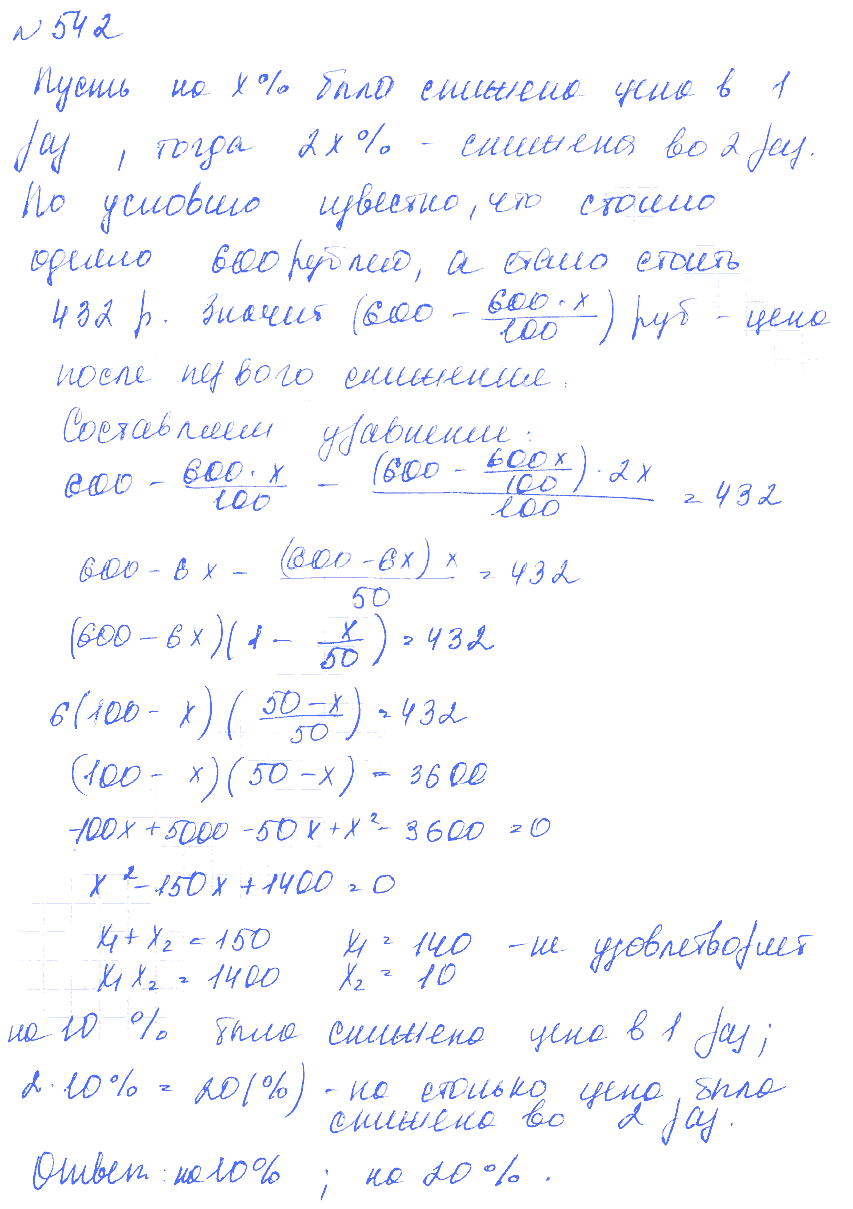 № 542
Пусть на x% была снижена цена в 1
раз, тогда 2x% - снижена во 2 раз.
По условию известно, что стоило
одеяло 600 рублей, а стало стоить
432 р. Значит (600 - \frac{600·x}{100}) руб - цена
после первого снижения.
Составляем уравнение:
600 - \frac{600·x}{100} - \frac{(600 - \frac{600x}{100})·2x}{100} = 432
600 - 6x - \frac{(600-6x)x}{50} = 432
(600-6x)(1 - \frac{x}{50}) = 432
6(100-x)(\frac{50-x}{50}) = 432
(100-x)(50-x) = 3600
-100x+5000-50x+x²-3600=0
x²-150x+1400=0
x₁+x₂=150 x₁=140 -не удовлетворяет
x₁x₂=1400 x₂=10
на 10 % была снижена цена в 1 раз;
2·10%=20(%) - на столько цена была
снижена во 2 раз.
Ответ: на 10%; на 20%.